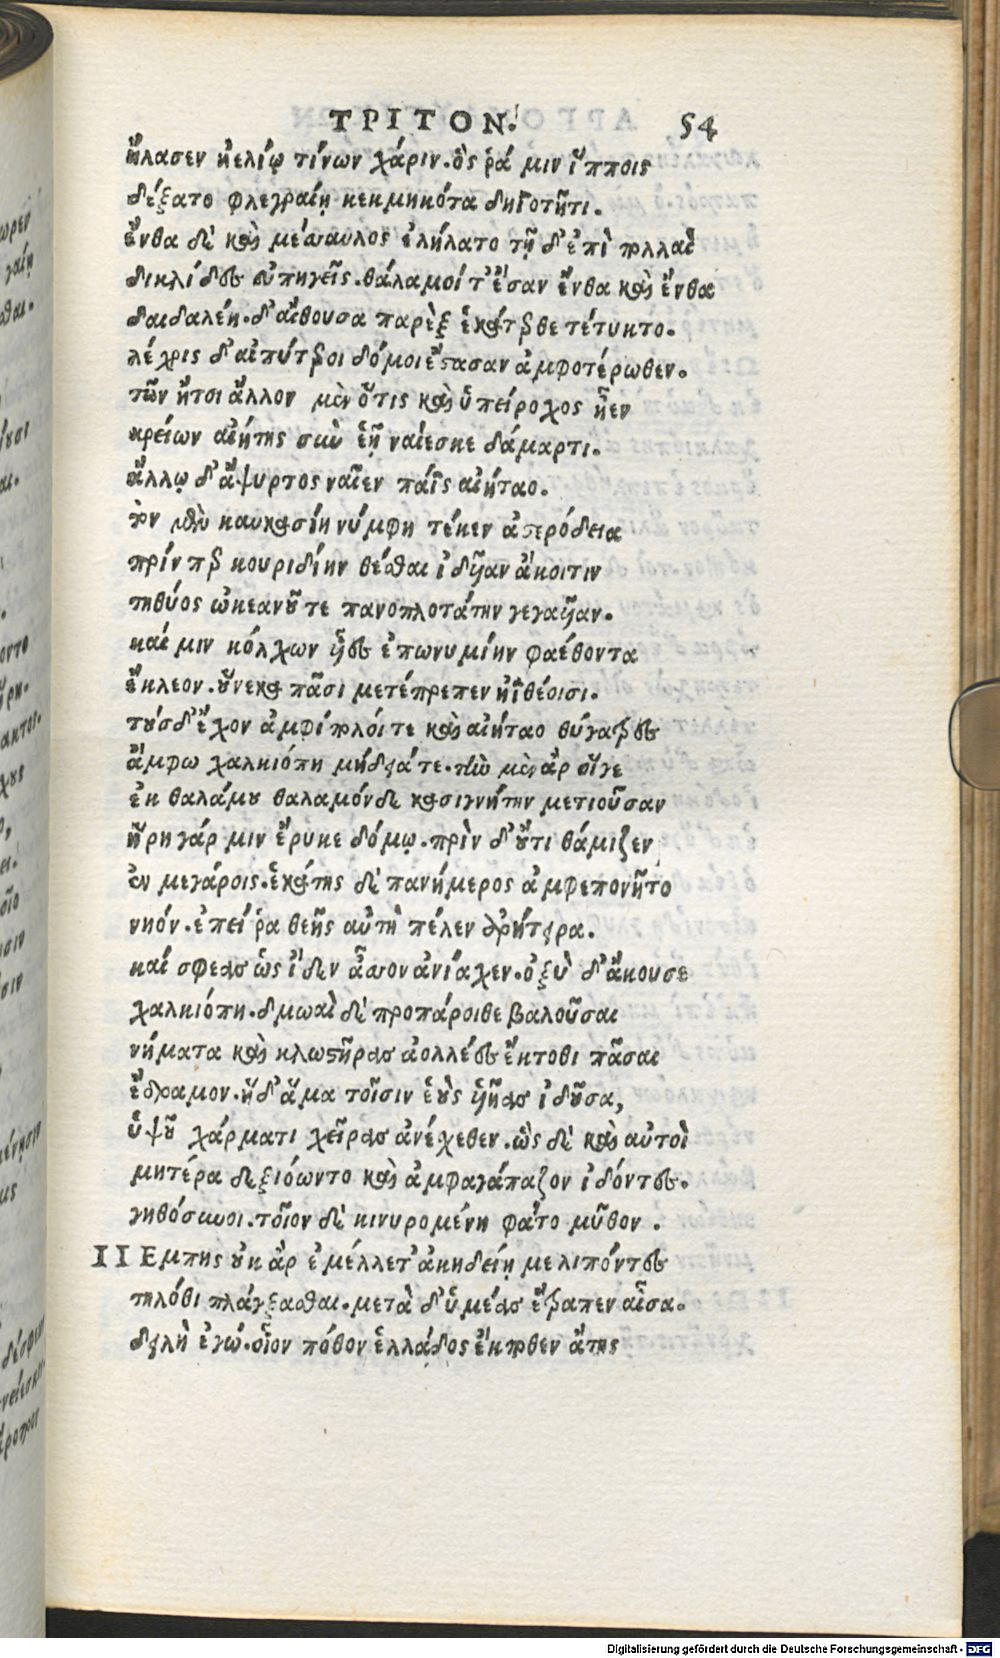 ΤΡΙΤΟΝ. 54
ἤλασεν ἠελίῳ τίνων χάριν. ὅς ῥά μιν ἵπποις
δέξατο φλεγραίῃ κεκμηκότα δηϊοτῆτι.
ἔνθα δὲ καὶ μέσαυλος ἐλήλατο τῇ δ' ἐπὶ πολλαὶ
δικλίδες εὐπηγεῖς. θάλαμοί τ' ἔσαν ἔνθα καὶ ἔνθα
δαιδαλέη. δ' αἴθουσα παρὲξ ἑκάτερθε τέτυκτο.
λέχρις δ' αἰπύτεροι δόμοι ἕστασαν ἀμφοτέρωθεν.
τῶν ἤτοι ἄλλον μὲν ὅτις καὶ ὑπείροχος ἦεν
κρείων αἰήτης σὺν ἑῇ ναίεσκε δάμαρτι.
ἄλλῳ δ' ἄψυρτος ναῖεν πάϊς αἰήταο.
τὸν μὲν καυκασίη νύμφη τέκεν ἀστερόδεια
πρίν περ κουριδίην θέσθαι ἰδῦιαν ἄκοιτιν
τηθύος ὠκεανοῦ τε πανοπλοτάτην γεγαῦιαν.
καί μιν κόλχων υἷες ἐπωνυμίην φαέθοντα
ἔκλεον. οὕνεκα πᾶσι μετέπρεπεν ἠϊθέοισι.
τοὺς δ' ἔχον ἀμφίπολοί τε καὶ αἰήταο θύγατρες
ἄμφω χαλκιόπη μήδειά τε. τὴν μὲν ἄρ οἵγε
ἐκ θαλάμου θαλαμόνδε κασιγνήτην μετιοῦσαν
ἥρη γάρ μιν ἔρυκε δόμῳ. πρὶν δ' οὔτι θάμιζεν
ἐν μεγάροις. ἑκάτης δὲ πανήμερος ἀμφεπονῆτο
νηόν. ἐπεί ῥα θεῆς αὐτὴ πέλεν ἀρήτειρα.
καί σφεας ὡς ἴδεν ἆσσον ἀνίαχεν. ὀξὺ δ' ἄκουσε
χαλκιόπη. δμωαὶ δὲ προπάροιθε βαλοῦσαι
νήματα καὶ κλωστῆρας ἀολλέες ἔκτοθι πᾶσαι
ἔδραμον. ἡ δ' ἅμα τοῖσιν ἑοὺς υἷηας ἰδοῦσα,
ὑψοῦ χάρματι χεῖρας ἀνέχεθεν. ὣς δὲ καὶ αὐτοὶ
μητέρα δεξιόωντο καὶ ἀμφαγάπαζον ἰδόντες.
γηθόσυνοι. τοῖον δὲ κινυρομένη φάτο μῦθον.
ΙΙ Εμπης οὐκ ἄρ ἐμέλλετ' ἀκηδείῃ με λιπόντες
τηλόθι πλάγξασθαι. μετὰ δ' ὑμέας ἔτραπεν αἶσα.
δειλὴ ἐγώ. οἷον πόθον ἑλλάδος ἔκποθεν ἄτης
Digitalisierung gefördert durch die Deutsche Forschungsgemeinschaft - DFG